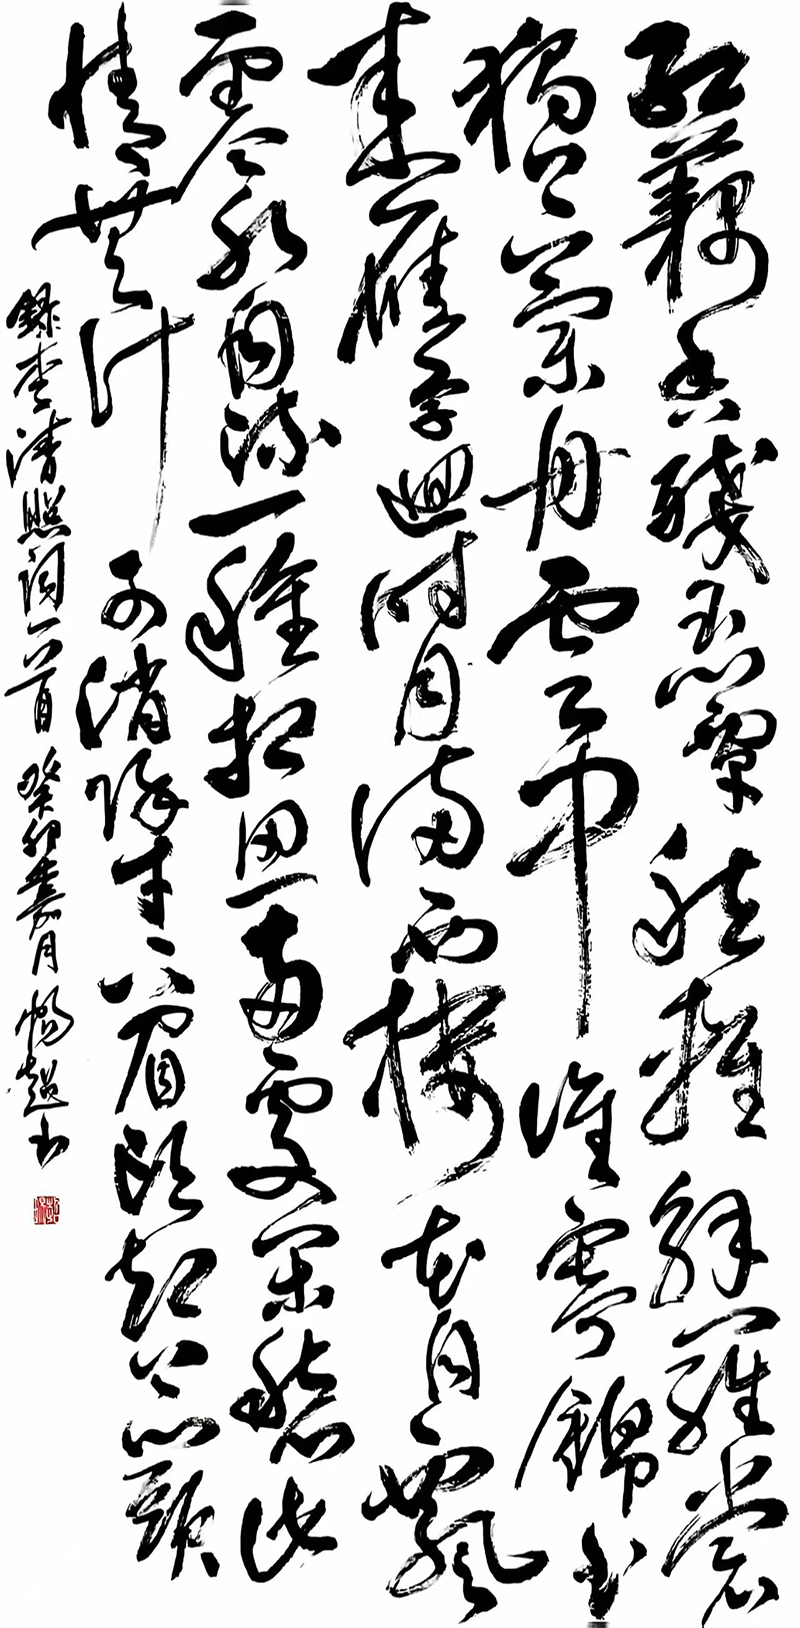 紅藕香殘玉簟秋輕解羅裳
獨上蘭舟雲中誰寄錦書
來雁字迴時月滿西樓花自飄
零水自流一種相思兩處閑愁此
情無計可消除才下眉頭却上心頭
錄李清照詞一首癸卯年嘉月暢超书